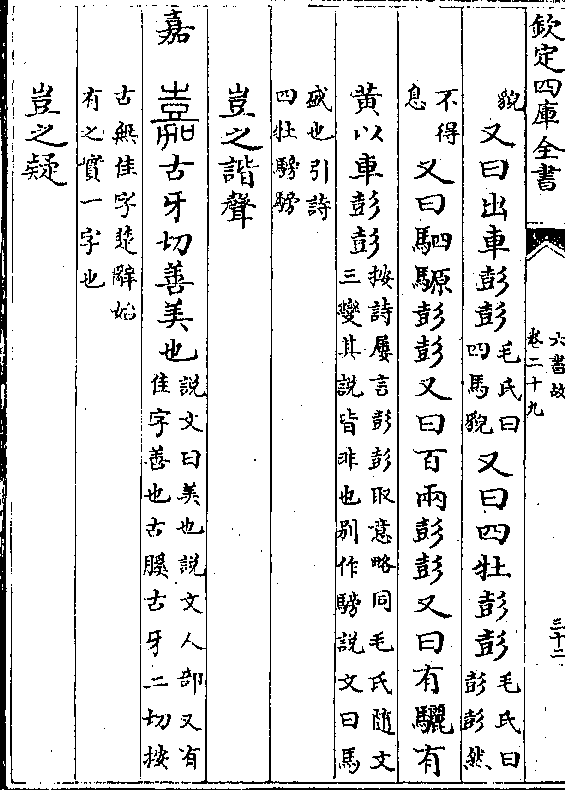 欽定四庫全書
六書故
卷二十九
三十二
貌又曰出車彭彭毛氏曰四馬貌又曰四牡彭彭毛氏曰彭彭然
不得息又曰駟騵彭彭又曰百兩彭彭又曰有驪有
黃以車彭彭按詩屢言彭彭取意略同毛氏隨文三變其說皆非也别作騯說文曰馬
盛也引詩四牡騯騯
豈之諧聲
嘉古牙切善美也説文曰美也説文人部又有佳字善也古膎古牙二切按
古無佳字楚辭始有之實一字也
豈之疑